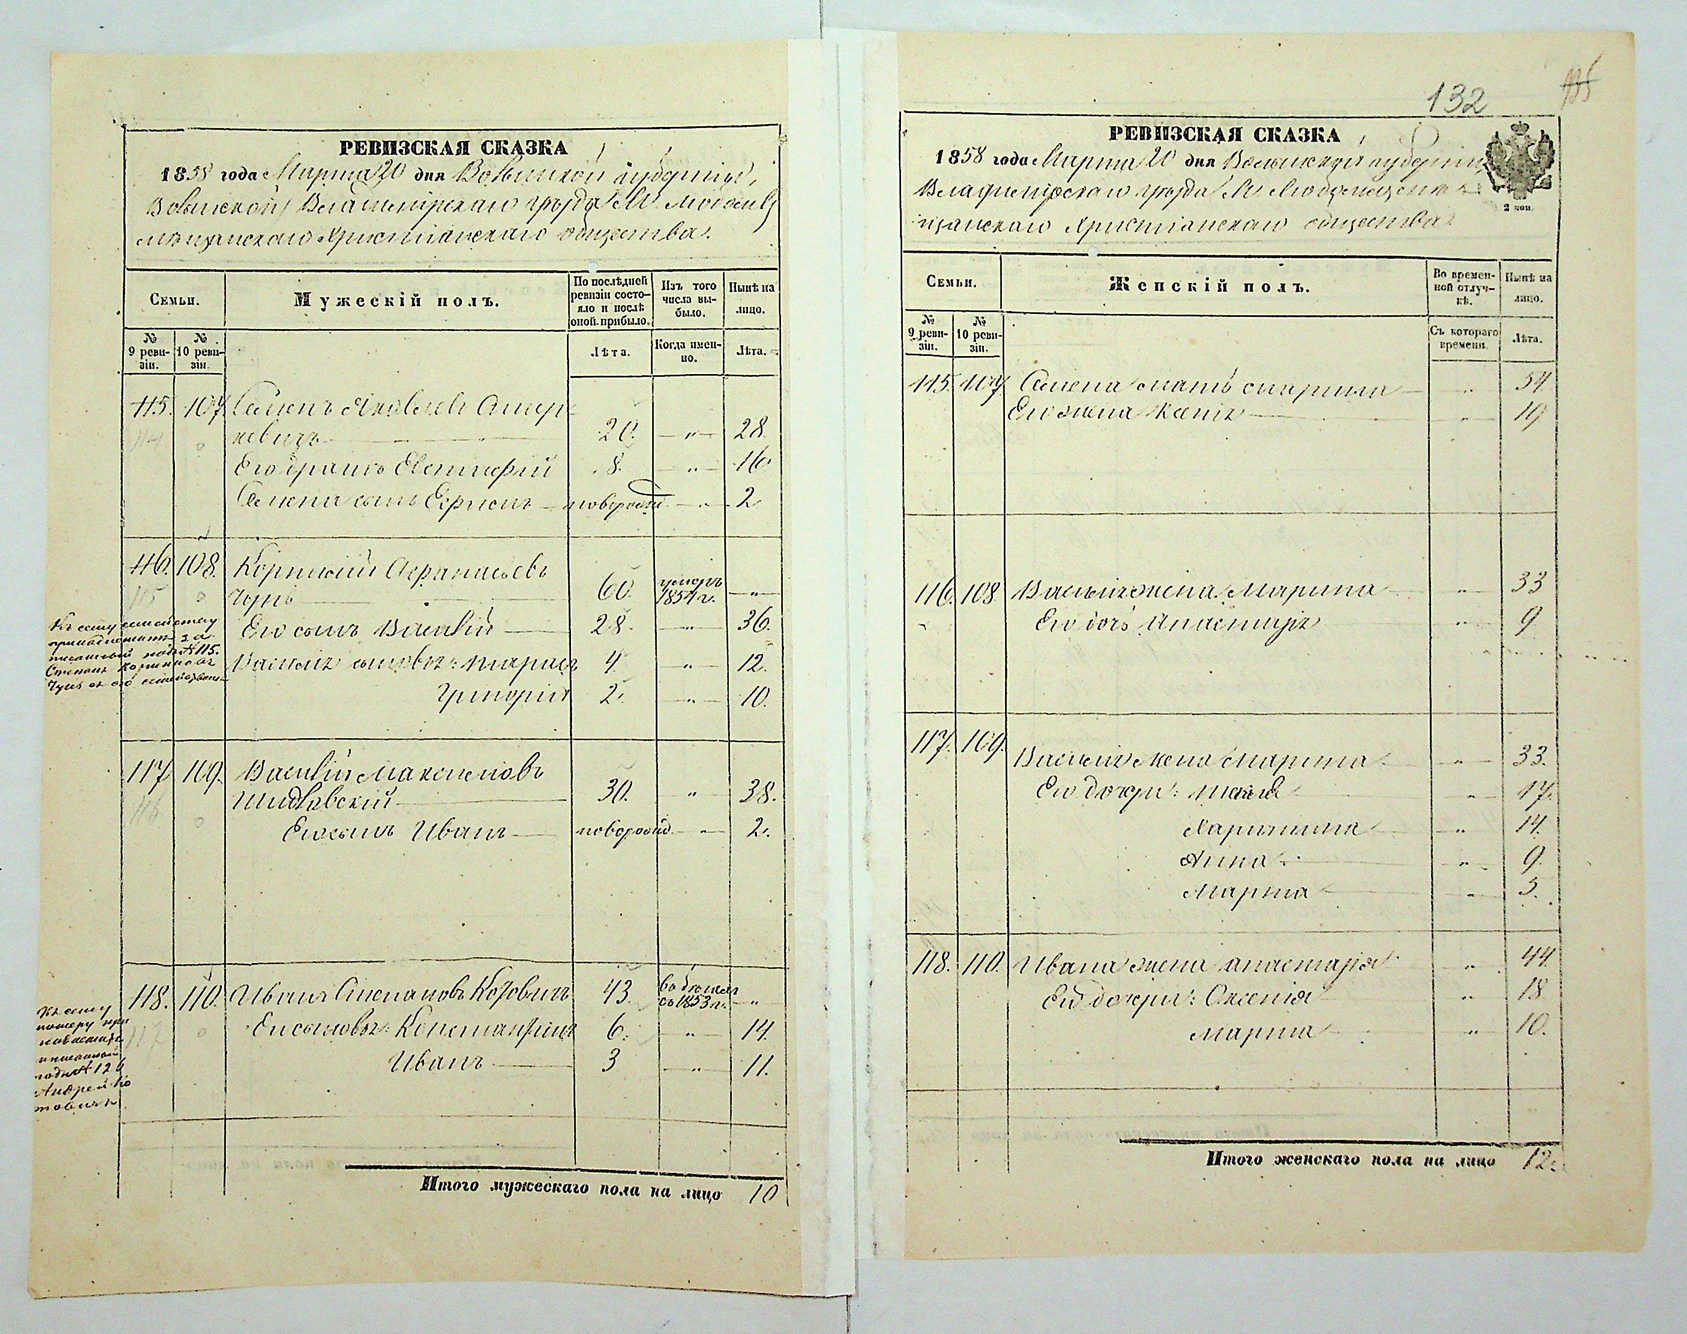 РЕВИЗСКАЯ СКАЗКА
1858 года Марта 20 дня Волынской губерніи,
Волынской Владимірскаго уѣзда М.
мѣщанскаго Христіанскаго общества.
Семьи.
Мужескій полъ.
По послѣдней ревизіи состояло и послѣ оной прибыло.
Изъ того числа выбыло.
Нынѣ на лицо.
№ 9 ревизіи.
№ 10 ревизіи.
Лѣта.
Когда именно.
Лѣта.
115. 107. Семенъ Яковлевъ
20. — „ — 28.
Его братъ Евстафій 8. — „ — 16.
Семена сынъ Ефимъ новорожд. — „ — 2
116. 108. Корнилій Афанасьевъ
Чупъ 60. умеръ 1854 г. — „ —
Его сынъ Василій 28. — „ — 36.
Василія сыновья: 4 „ 12.
Григорій 2. — „ — 10.
Къ сему семейству
принадлежитъ за
писанный подъ № 115.
Степанъ Корниловъ
Чупъ съ его семействомъ
117 109. Василій Максимовъ
Шидловскій 30. „ 38.
Его сынъ Иванъ новорожд. „ 2.
118. 110. Иванъ Степановъ Котовичъ 43. въ бѣгахъ съ 1853 г. — „
Его сыновья: Константинъ 6. „ 14.
Иванъ 3 — „ — 11.
Къ сему
номеру при
писанной
подъ № 126
Андрей Ко
товичъ
Итого мужескаго пола на лицо 10
132
РЕВИЗСКАЯ СКАЗКА
1858 года Марта 20 дня Волынской губерніи
Владимірскаго уѣзда М.
щанскаго Христіанскаго общества.
2 коп.
Семьи.
Женскій полъ.
Во временной отлучкѣ.
Нынѣ на лицо.
№ 9 ревизіи.
№ 10 ревизіи.
Съ котораго времени.
Лѣта.
115. 107. Семена мать Марина „ 54
Его жена Ксенія „ 19
116. 108 Василія жена Марина „ 33
Его дочь Анастасія „ 9
117. 109. Василія жена Марина „ 33.
Его дочери: „ 17.
Харитина „ 14.
Анна „ 9.
Марта „ 3.
118. 110. Ивана жена Анастасія „ 44.
Его дочери: Оксенія „ 18
Марта „ 10.
Итого женскаго пола на лицо 12.